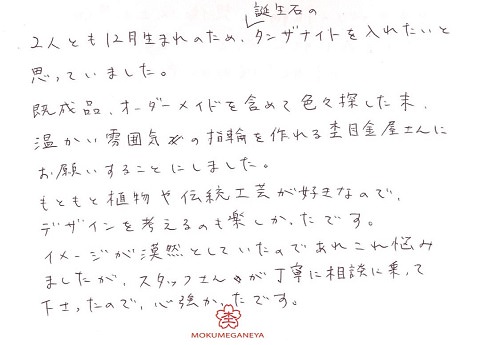 誕生石の
2人とも12月生まれのため、タンザナイトを入れたいと
思っていました。
既成品、オーダーメイドを含めて色々探した末、
温かい雰囲気の指輪を作れる杢目金屋さんに
お願いすることにしました。
もともと植物や伝統工芸が好きなので、
デザインを考えるのも楽しかったです。
イメージが漠然としていたのであれこれ悩み
ましたが、スタッフさんが丁寧に相談に乗って
下さったので、心強かったです。
杢
MOKUMEGANEYA